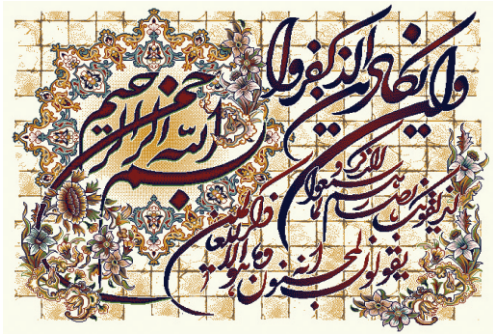 بسم الله الرحمن الرحیم
وان یکاد الذین کفروا
لیزلقونک بابصارهم لما سمعوا الذکر و
یقولون انه لمجنون وما هو الا ذکر للعالمین